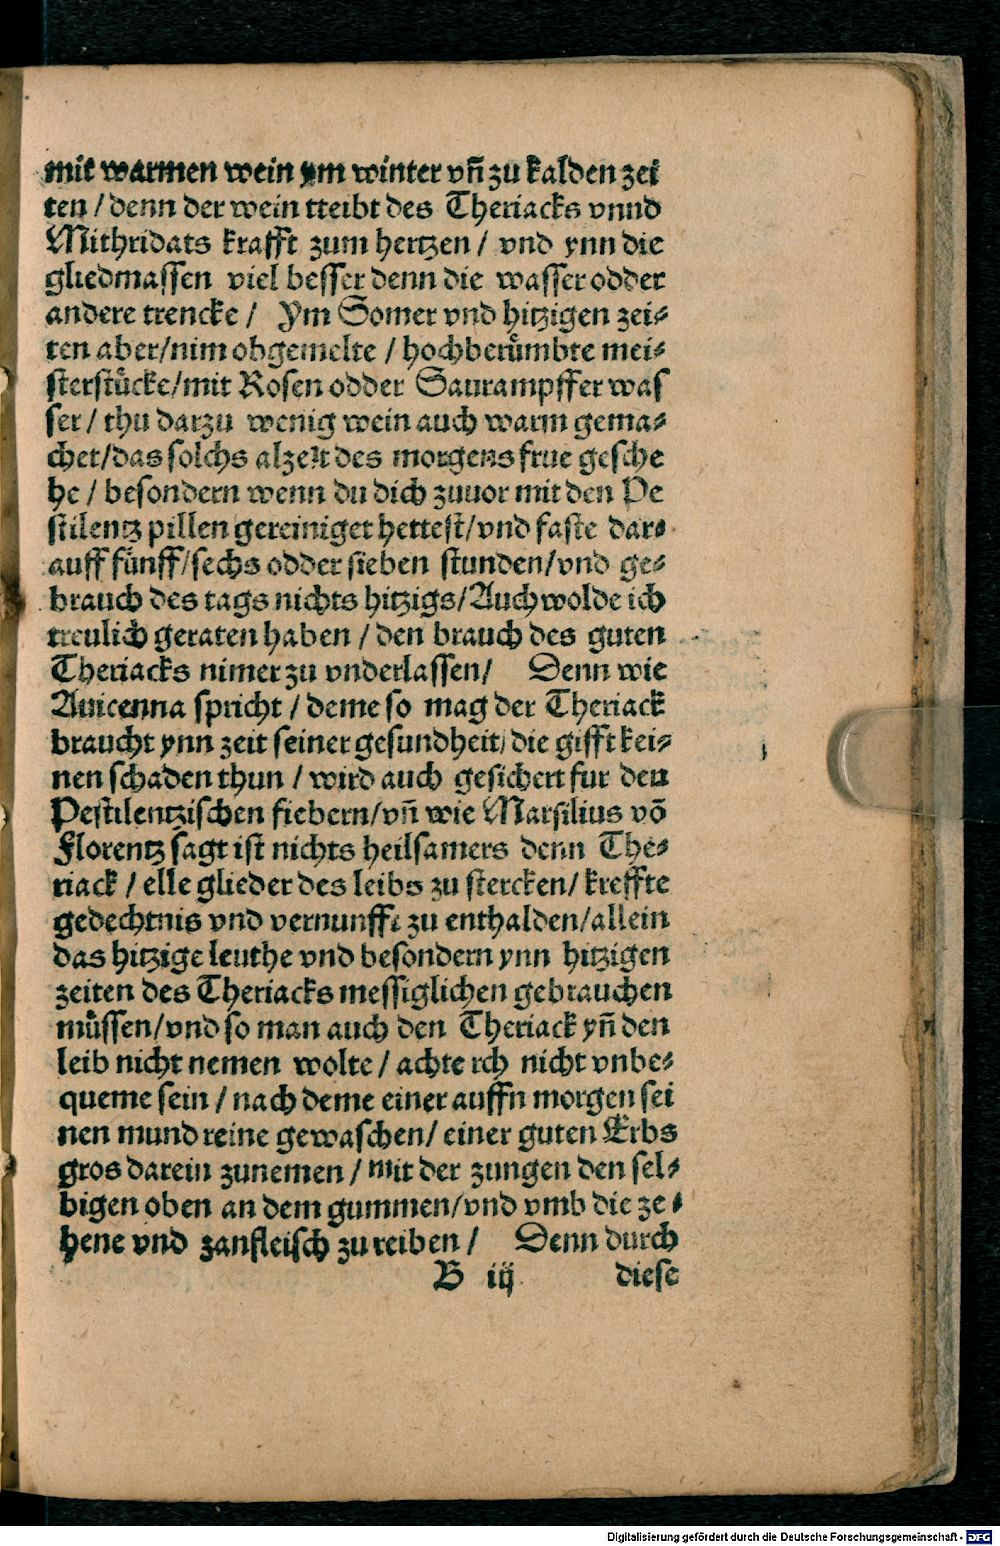 mit warmen wein ym winter vñ zu kalden zei
ten / denn der wein tteibt des Theriacks vnnd
Mithridats krafft zum hertzen / vnd ynn die
gliedmassen viel besser denn die wasser odder
andere trencke / Ym Somer vnd hitzigen zei⸗
ten aber/nim obgemelte / hochberuͤmbte mei⸗
sterstuͤcke/mit Rosen odder Saurampffer was
ser / thu darzu wenig wein auch warm gema⸗
chet/das solchs alzeit des morgens frue gesche
he / besondern wenn du dich zuuor mit den Pe
stilentz pillen gereiniget hettest/vnd faste dar⸗
auff fuͤnff/sechs odder sieben stunden/vnd ge⸗
brauch des tags nichts hitzigs/Auch wolde ich
treulich geraten haben / den brauch des guten
Theriacks nimer zu vnderlassen/ Denn wie
Auicenna spricht / deme so mag der Theriack
braucht ynn zeit seiner gesundheit/die gifft kei⸗
nen schaden thun / wird auch gesichert fur den
Pestilentzischen fiebern/vñ wie Marsilius võ
Florentz sagt ist nichts heilsamers denn The⸗
riack / elle glieder des leibs zu stercken/ kreffte
gedechtnis vnd vernunfft zu enthalden/allein
das hitzige leuthe vnd besondern ynn hitzigen
zeiten des Theriacks messiglichen gebrauchen
muͤssen/vnd so man auch den Theriack yñ den
leib nicht nemen wolte / achte ich nicht vnbe⸗
queme sein / nach deme einer auffn morgen sei
nen mund reine gewaschen/ einer guten Erbs
gros darein zunemen / mit der zungen den sel⸗
bigen oben an dem gummen/vnd vmb die ze⸗
hene vnd zanfleisch zu reiben / Denn durch
B iij diese
Digitalisierung gefördert durch die Deutsche Forschungsgemeinschaft - DFG